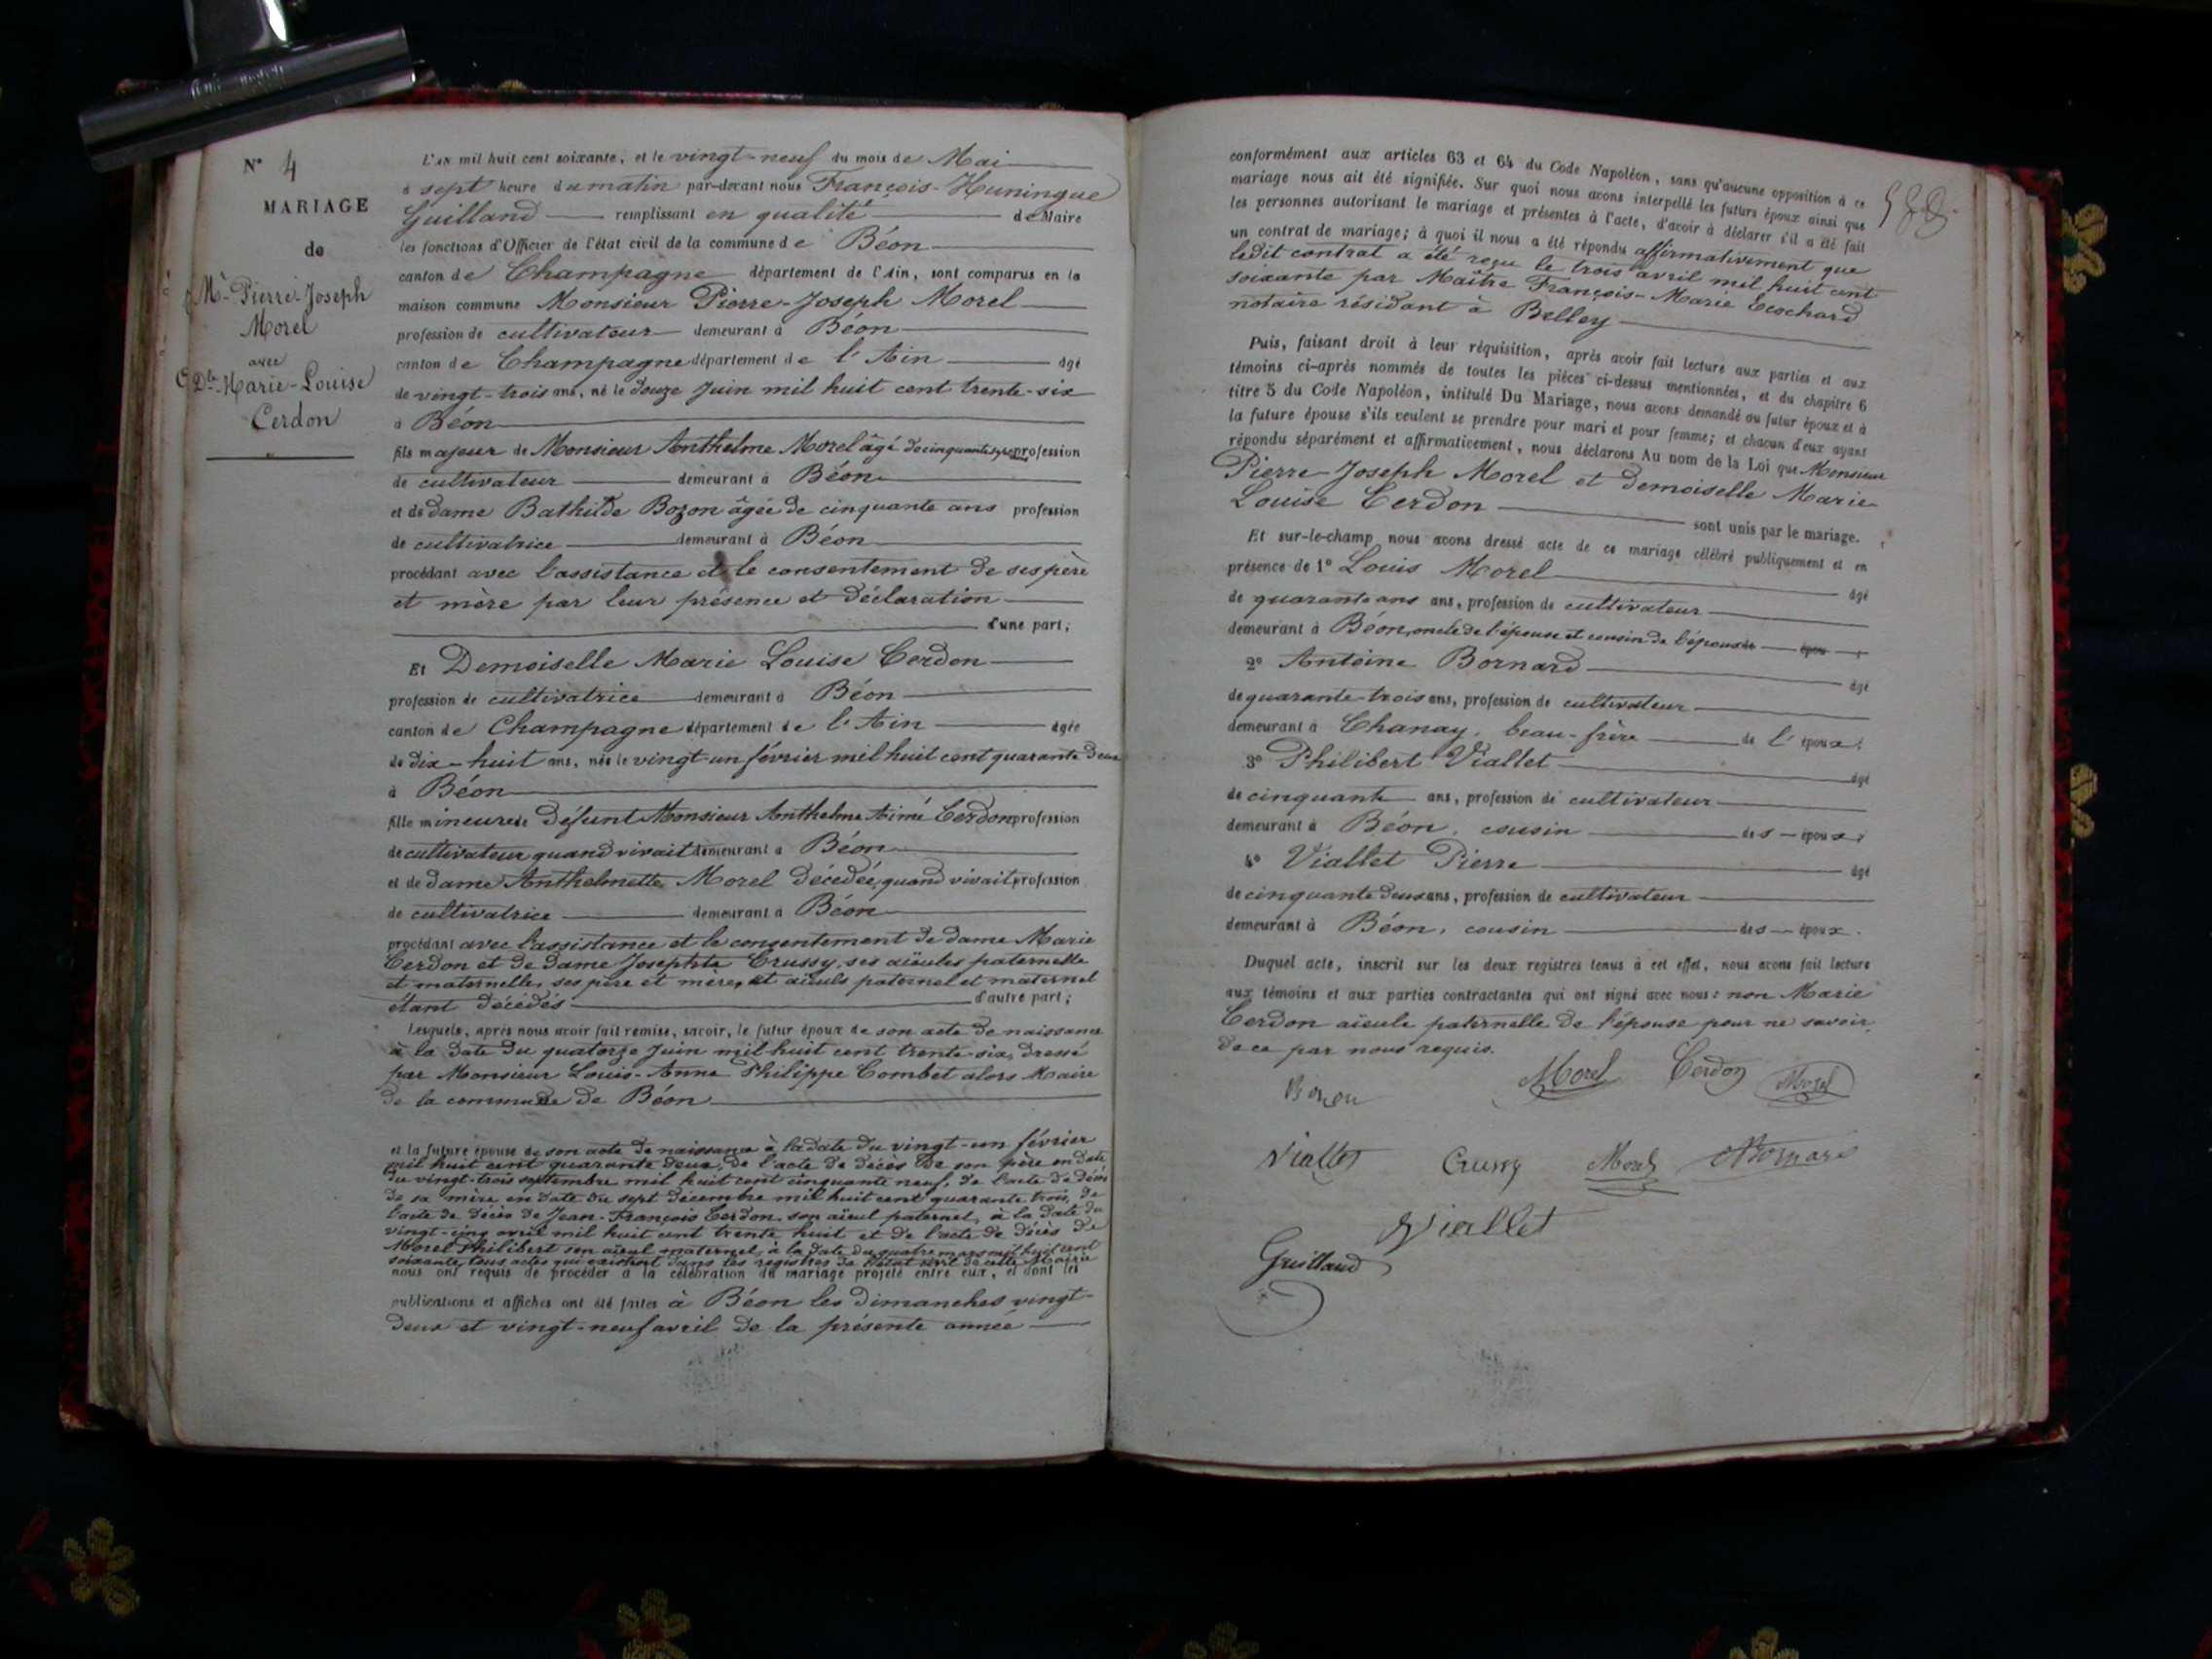 N° 4
MARIAGE
de
Mr Pierre-Joseph
Morel
avec
Dlle Marie-Louise
Cerdon
L'AN mil huit cent soixante, et le vingt-neuf du mois de Mai
à sept heure du matin par-devant nous François-Huningue
Guilland remplissant en qualité de Maire
les fonctions d'Officier de l'état civil de la commune de Béon
canton de Champagne département de l'Ain, sont comparus en la
maison commune Monsieur Pierre-Joseph Morel
profession de cultivateur demeurant à Béon
canton de Champagne département de l'Ain âgé
de vingt-trois ans, né le douze Juin mil huit cent trente-six
à Béon
fils majeur de Monsieur Anthelme Morel âgé de cinquante profession
de cultivateur demeurant à Béon
et de dame Bathilde Bozon âgée de cinquante ans profession
de cultivatrice demeurant à Béon
procédant avec l'assistance et le consentement de ses père
et mère par leur présence et déclaration
d'une part;
Et Demoiselle Marie Louise Cerdon
profession de cultivatrice demeurant à Béon
canton de Champagne département de l'Ain âgée
de dix-huit ans, née le vingt-un février mil huit cent quarante deux
à Béon
fille mineure de défunt Monsieur Anthelme Aimé Cerdon profession
de cultivateur quand vivait demeurant à Béon
et de dame Anthelmette Morel décédée, quand vivait profession
de cultivatrice demeurant à Béon
procédant avec l'assistance et le consentement de dame Marie
Cerdon et de dame Josephte Crussy, ses aïeules paternelle
et maternelle, ses père et mère, et aïeuls paternel et maternel
étant décédés d'autre part;
Lesquels, après nous avoir fait remise, savoir, le futur époux de son acte de naissance
à la date du quatorze Juin mil huit cent trente-six, dressé
par Monsieur Louis-Anne Philippe Combet alors Maire
de la commune de Béon
et la future épouse de son acte de naissance à la date du vingt-un février
mil huit cent quarante deux, de l'acte de décès de son père en date
du vingt-trois septembre mil huit cent cinquante neuf, de l'acte de décès
de sa mère en date du sept décembre mil huit cent quarante trois, de
l'acte de décès de Jean-François Cerdon, son aïeul paternel, à la date du
vingt-cinq avril mil huit cent trente huit et de l'acte de décès de
Morel Philibert son aïeul maternel, à la date du quatre mars mil huit cent
soixante, tous actes qui existent dans les registres de l'état civil de cette Mairie
nous ont requis de procéder à la célébration du mariage projeté entre eux, et dont les
publications et affiches ont été faites à Béon les dimanches vingt-
deux et vingt-neuf avril de la présente année
conformément aux articles 63 et 64 du Code Napoléon, sans qu'aucune opposition à ce
mariage nous ait été signifiée. Sur quoi nous avons interpellé les futurs époux ainsi que
les personnes autorisant le mariage et présentes à l'acte, d'avoir à déclarer s'il a été fait
un contrat de mariage; à quoi il nous a été répondu affirmativement que
ledit contrat a été reçu le trois avril mil huit cent
soixante par Maître François-Marie Ecochard
notaire résidant à Belley
Puis, faisant droit à leur réquisition, après avoir fait lecture aux parties et aux
témoins ci-après nommés de toutes les pièces ci-dessus mentionnées, et du chapitre 6
titre 5 du Code Napoléon, intitulé Du Mariage, nous avons demandé au futur époux et à
la future épouse s'ils veulent se prendre pour mari et pour femme; et chacun d'eux ayant
répondu séparément et affirmativement, nous déclarons Au nom de la Loi que Monsieur
Pierre-Joseph Morel et demoiselle Marie
Louise Cerdon
sont unis par le mariage.
Et sur-le-champ nous avons dressé acte de ce mariage célébré publiquement et en
présence de 1° Louis Morel âgé
de quarante ans ans, profession de cultivateur
demeurant à Béon, oncle de l'épouse et cousin de l'époux
2° Antoine Bornard âgé
de quarante-trois ans, profession de cultivateur
demeurant à Chanay, beau-frère de l'époux;
3° Philibert Viallet âgé
de cinquante ans, profession de cultivateur
demeurant à Béon, cousin des époux;
4° Viallet Pierre âgé
de cinquante deux ans, profession de cultivateur
demeurant à Béon, cousin des époux.
Duquel acte, inscrit sur les deux registres tenus à cet effet, nous avons fait lecture
aux témoins et aux parties contractantes qui ont signé avec nous: non Marie
Cerdon aïeule paternelle de l'épouse pour ne savoir,
de ce par nous requis.
Bozon Morel Cerdon Morel
Viallet Crussy Morel Bornard
Viallet
Guilland